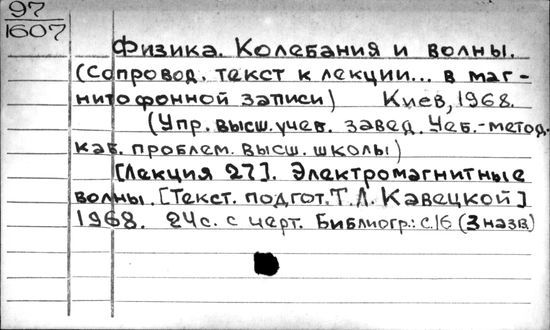 97
1607
Физика. Колебания и волны.
(Сопровод. текст к лекции... в маг-
нитофонной записи) Киев, 1968.
(Упр. высш. учеб. завед. Учеб.-метод.
каб. проблем. высш. школы)
[Лекция 27]. Электромагнитные
волны. [Текст. подгот. Т.Л. Кавецкой]
1968. 24с. с черт. Библиогр.: с.16 (3 назв.)